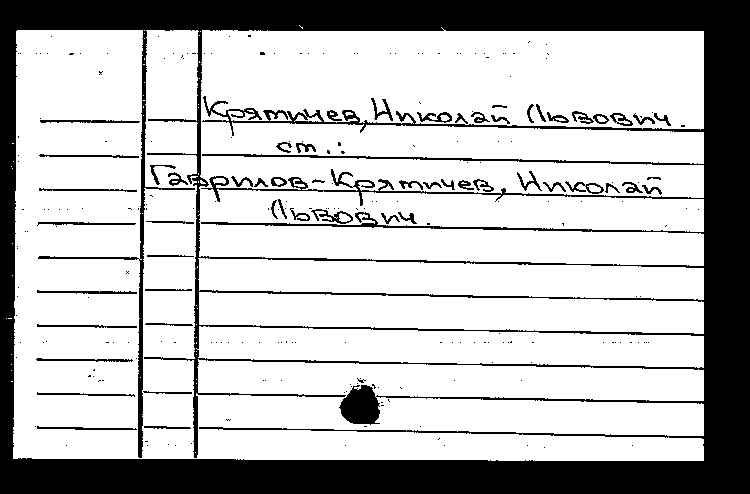 Крятичев, Николай Львович.
ст.:
Гаврилов-Крятичев, Николай
Львович.